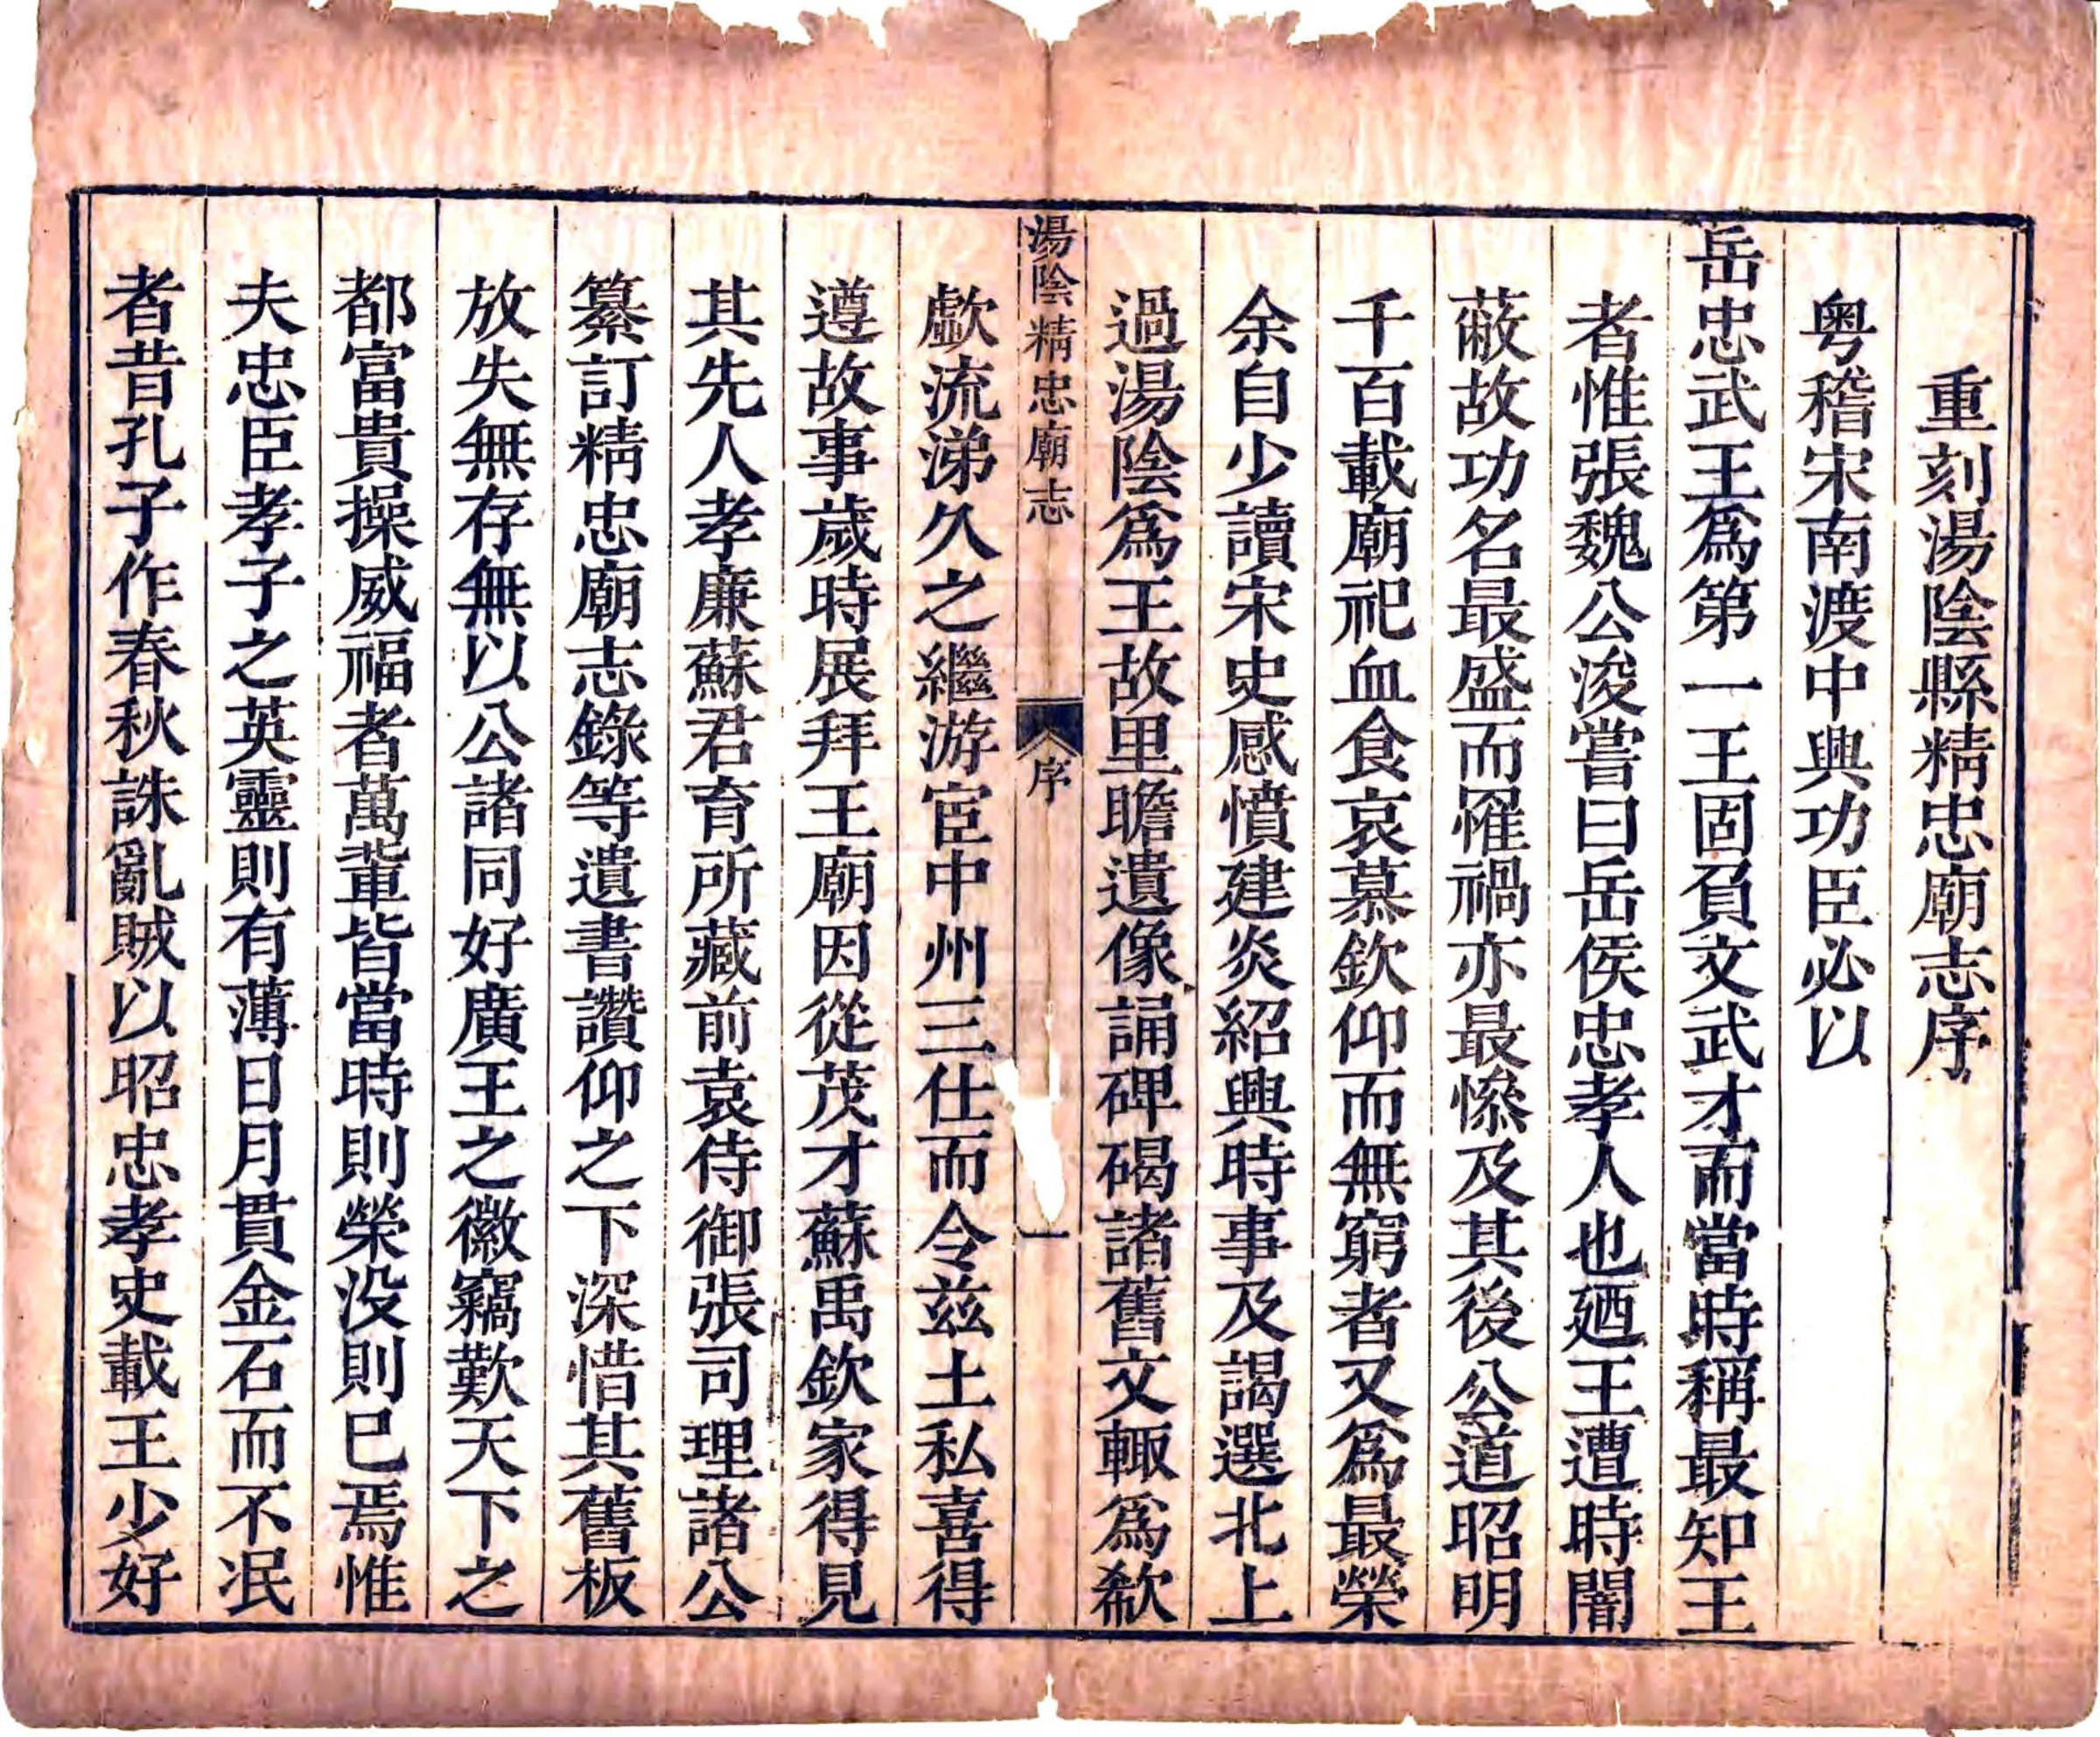 重刻湯陰縣精忠廟志序
粤稽宋南渡中興功臣必以
岳忠武王爲第一王固負文武才而當時稱最知王
者惟張魏公浚嘗曰岳侯忠孝人也廼王遭時闇
蔽故功名最盛而罹禍亦最慘及其後公道昭明
千百載廟祀血食哀慕欽仰而無窮者又爲最榮
余自少讀宋史感憤建炎紹興時事及謁選北上
過湯陰爲王故里瞻遺像誦碑碣諸舊文輙爲欷
湯陰精忠廟志
序
一
歔流涕久之繼游宦中州三仕而令兹土私喜得
遵故事歲時展拜王廟因從茂才蘇禹欽家得見
其先人孝廉蘇君育所藏前袁侍御張司理諸公
纂訂精忠廟志錄等遺書讚仰之下深惜其舊板
放失無存無以公諸同好廣王之徽竊歎天下之
都富貴操威福者萬輩皆當時則榮没則已焉惟
夫忠臣孝子之英靈則有薄日月貫金石而不泯
者昔孔子作春秋誅亂賊以昭忠孝史載王少好